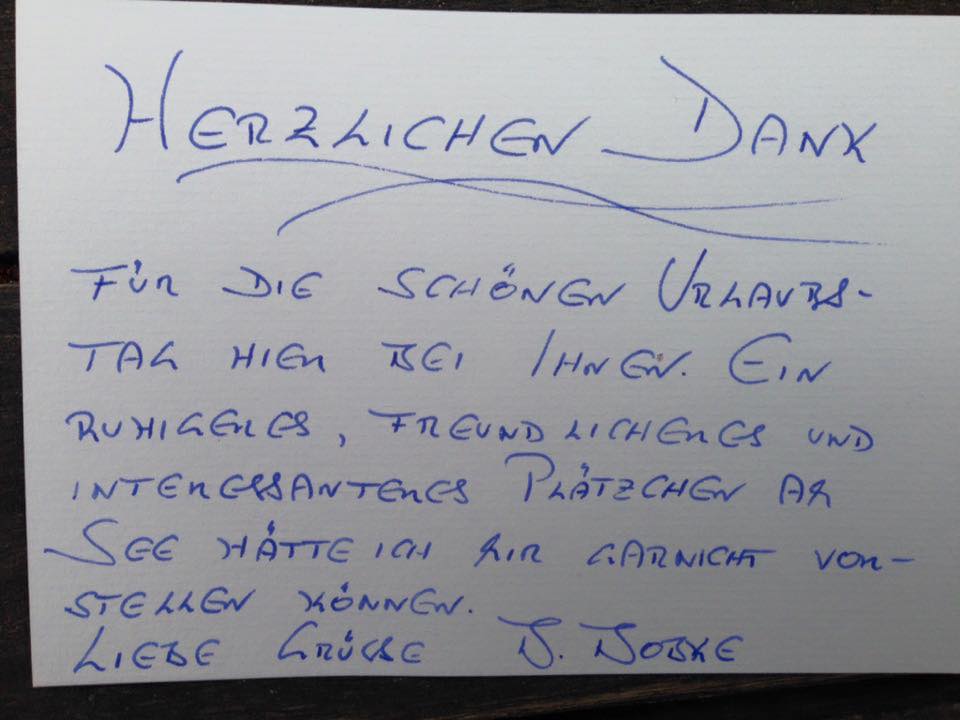 HERZLICHEN DANK
FÜR DIE SCHÖNEN URLAUBS-
TAG HIER BEI IHNEN. EIN
RUHIGERES, FREUNDLICHERES UND
INTERESSANTERES PLÄTZCHEN AM
SEE HÄTTE ICH MIR GARNICHT VOR-
STELLEN KÖNNEN.
LIEBE GRÜSSE